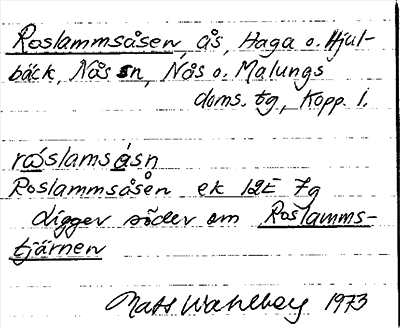 Roslammsåsen, ås, Haga o. Hjul-
bäck, Nås sn, Nås o. Malungs
doms. tg, Kopp. l.
råslamsåsn
Roslammsåsen ek 12E 7g
digger söder om Roslamms-
tjärnen
Mats Wahlberg 1973